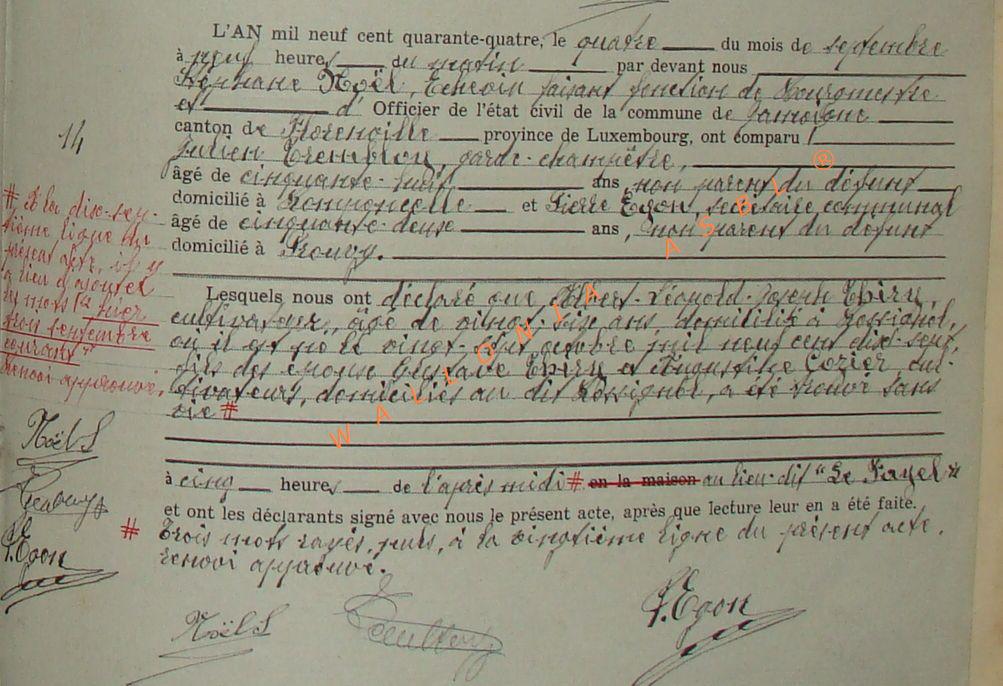 L'AN mil neuf cent quarante-quatre, le quatre du mois de septembre
à neuf heures du matin par devant nous
Stéphane Noël, Echevin faisant fonction de Bourgmestre
et d' Officier de l'état civil de la commune de Jamoigne
14
canton de Florenville province de Luxembourg, ont comparu :
Julien garde-champêtre,
âgé de cinquante-huit ans, non parent du défunt
domicilié à et Pierre Egon, secrétaire communal
âgé de cinquante-deux ans, non parent du défunt
domicilié à Prouvy.
# A la dix-sep-
tième ligne du
présent acte, il y
a lieu d'ajouter
les mots "hier
trois septembre
courant"
Renvoi approuvé.
Lesquels nous ont déclaré que Albert-Léopold-Joseph Thiry,
cultivateur, âgé de vingt-six ans, domicilié à Rossignol,
où il est né le vingt- octobre mil neuf cent dix-sept,
fils des époux Gustave Thiry et Augustine Cozier, cul-
tivateurs, domiciliés au dit Rossignol, a été trouvé sans
vie #
à cinq heures de l'après midi # en la maison au lieu-dit "Le Fayel"
et ont les déclarants signé avec nous le présent acte, après que lecture leur en a été faite.
# Trois mots rayés, nuls, à la vingtième ligne du présent acte.
Renvoi approuvé.
Noël S
P. Egon
Noël S
P. Egon
WALLONIA ASBL ®